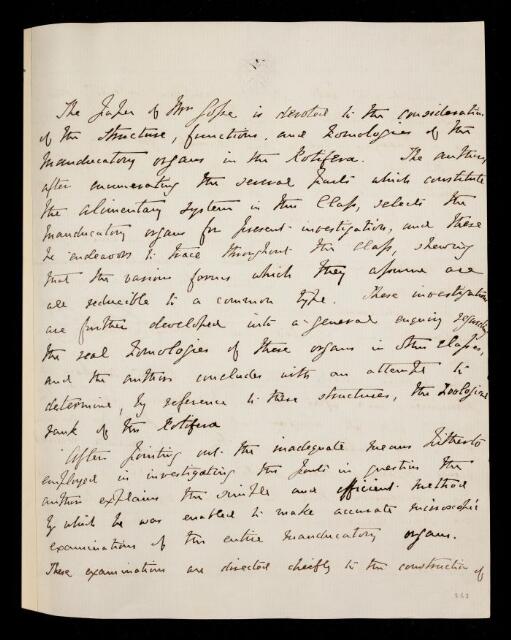 The paper of Mr Gosse is devoted to the consideration
of the structure, functions, and homologies of the
Manducatory organs in the Rotifera. The author,
after enumerating the several parts which constitute
the alimentary system in this Class, selects the
Manducatory organs for present investigation, and these
he endeavors to trace throughout the Class, shewing
that the various forms which they assume are
all reducible to a common type. These investigations
are further developed into a general enquiry regarding
the real homologies of these organs in other Classes,
and the author concludes with an attempt to
determine, by reference to these structures, the Zoological
rank of the Rotifera
After pointing out the inadequate means hitherto
employed in investigating the parts in question the
author explains the simple and efficient method
by which he was enabled to make accurate microscopic
examinations of the entire Manducatory organs.
These examinations are directed chiefly to the construction of